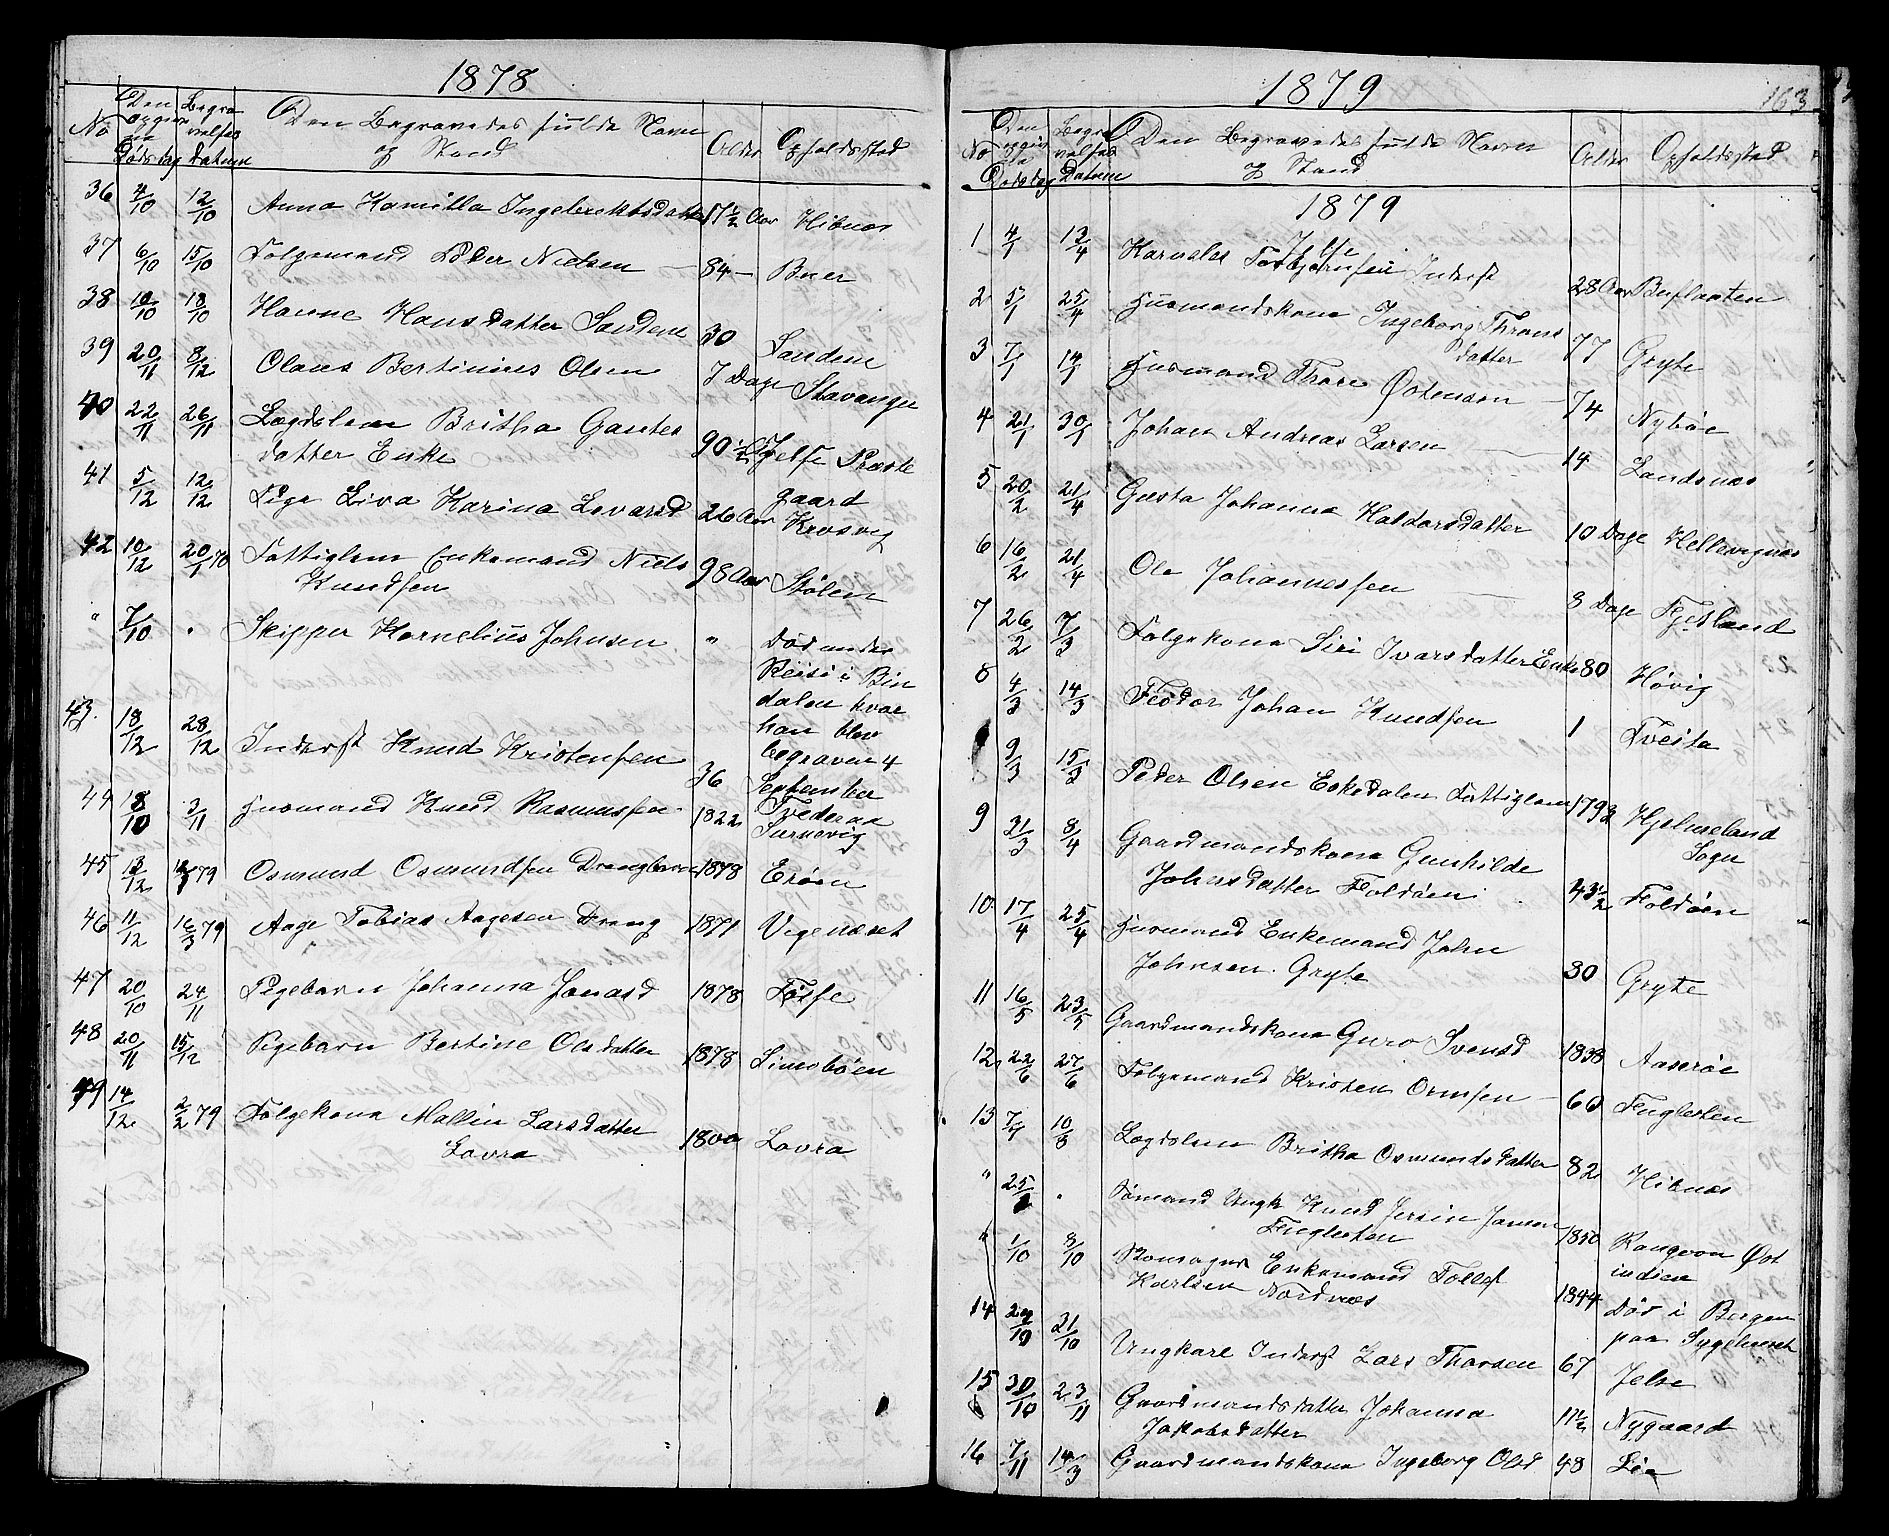 1878
No Den opgivne Dødsdag Begravelses datum Den Begravedes fulde Navn og Stand Alder Opholdsted
36 4/10 12/10 Anna Kamilla Ingebrektsdatter 17½ Aar Hibnæs
37 6/10 15/10 Folgemand Peder Nielsen 84 Buer
38 10/10 18/10 Hanne Hansdatter Sandene 30 Sandene
39 20/11 8/12 Olaus Bertinius Olsen 7 Dage Stavanger
40 22/11 26/11 Lægdslem Britha Gautes
datter Enke 90½ Jelse Præste
gaard
41 5/12 12/12 Pige Liva Karina Lovarsd 26 Aar Krosvig
42 10/12 20/1 Fattiglem Enkemand Niels
Knudsen 98 Aar Stølen
" 7/10 " Skipper Kornelius Johnsen " Død under
Reise i Bin
dalen hvor
han blev
begraven 4
September
43. 18/12 28/12 Inderst Knud Kristensen 36 Tvederaa
44 18/10 3/11 Husmand Knud Rasmussen 1822 Surnevig
45 13/12 79 Osmund Osmundsen Drengbarn 1878 Erøen
46 11/12 16/3 79 Aage Tobias Aagesen Dreng 1871 Vigenæset
47 20/10 24/11 Pigebarn Johanna Jonasd 1878 Fosse
48 20/11 15/12 Pigebarn Bertine Olsdatter 1878 Limobøen
49 14/12 2/2 79 Folgekona Mallin Larsdatter
Lovra 1800 Lovra
1879
163
No Den opgivne Dødsdag Begravelses Datum Den Begravedes fulde Navn og Stand Alder Opholdsted
1879
1 4/1 13/4 Karneles Torbjørnsen Inderst 28 Aar Buflaaten
2 5/1 25/4 Husmandskona Ingeborg Throns
datter 77 Gryte
3 7/1 14/1 Husmand Thore Østensen 74 Nybøe
4 21/1 30/1 Johan Andreas Larsen 14 Landsnæs
5 20/2 21/4 Gusta Johanna Haldorsdatter 10 Dage Hellevignæs
6 16/2 21/4 Ole Johannessen 8 Dage Fjetland
7 26/2 7/3 Folgekona Siri Ivarsdatter Enke 80 Høvig
8 4/3 14/3 Feodor Johan Knudsen 1 Tveita
9/3 15/3 Peder Olsen Eskedalen Fattiglem 1793 Hjelmeland
Sogn
9 31/3 8/4 Gaardmandskona Gunhilde
Johnsdatter Foldøen 43½ Foldøen
10 17/4 25/4 Husmand Enkemand John
Johnsen Gryte 30 Gryte
11 16/5 23/5 Gaardmandskona Guro Svensd 1838 Aaserøe
12 22/6 27/6 Folgemand Kristen Ormsen 60 Fuglesten
13 7/7 10/8 Lægdslem Britha Osmundsdatter 82 Hibnæs
" 25/ " Sømand Ungk Knud Jersin Jansen
Fuglesten 1850 Rangoon Øst
indien
" 1/10 8/10 Enkemand Tollef
Karlsen Nordnæs 1844 Død i Bergen
paa Sygehuset
14 /10 21/10 Ungkarl Inderst Lars Thorsen 67 Jelse
15 30/10 23/11 Gaardmandsdatter Johanna
Jakobsdatter 11½ Nygaard
16 7/11 14/3 Gaardmandskona Ingeborg Olsd 48 Lie